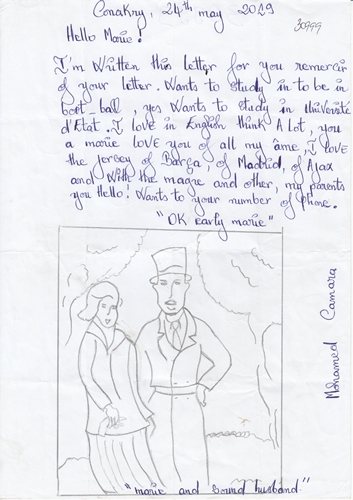 Conakry, 24th may 2019
30999
Hello Marie!
I'm Written this letter for you remercier
of your letter. Wants to study in to be in
boot-ball, yes Wants to study in Université
d'Etat. I love in English think A Lot, you
a marie love you of all my âme, I love
the jersey of Barça, of Madrid, of Ajax
and With the magre and other, my parents
you Hello! Wants to your number of phone.
"OK Early marie"
Mohamed Camara
"marie and sound husband."